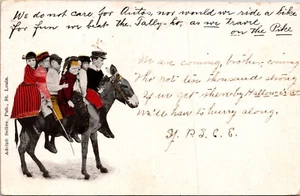 We do not care for Autos, nor would we ride a bike
for fun we beat the Tally-ho, as we Travel
on the Pike
We are coming, brother, coming
Who not ten thousand strong
If we get thereby Hallow
We'll have to hurry along.
Y. P. S. C. E.
Adolph Selige, Pub., St. Louis.